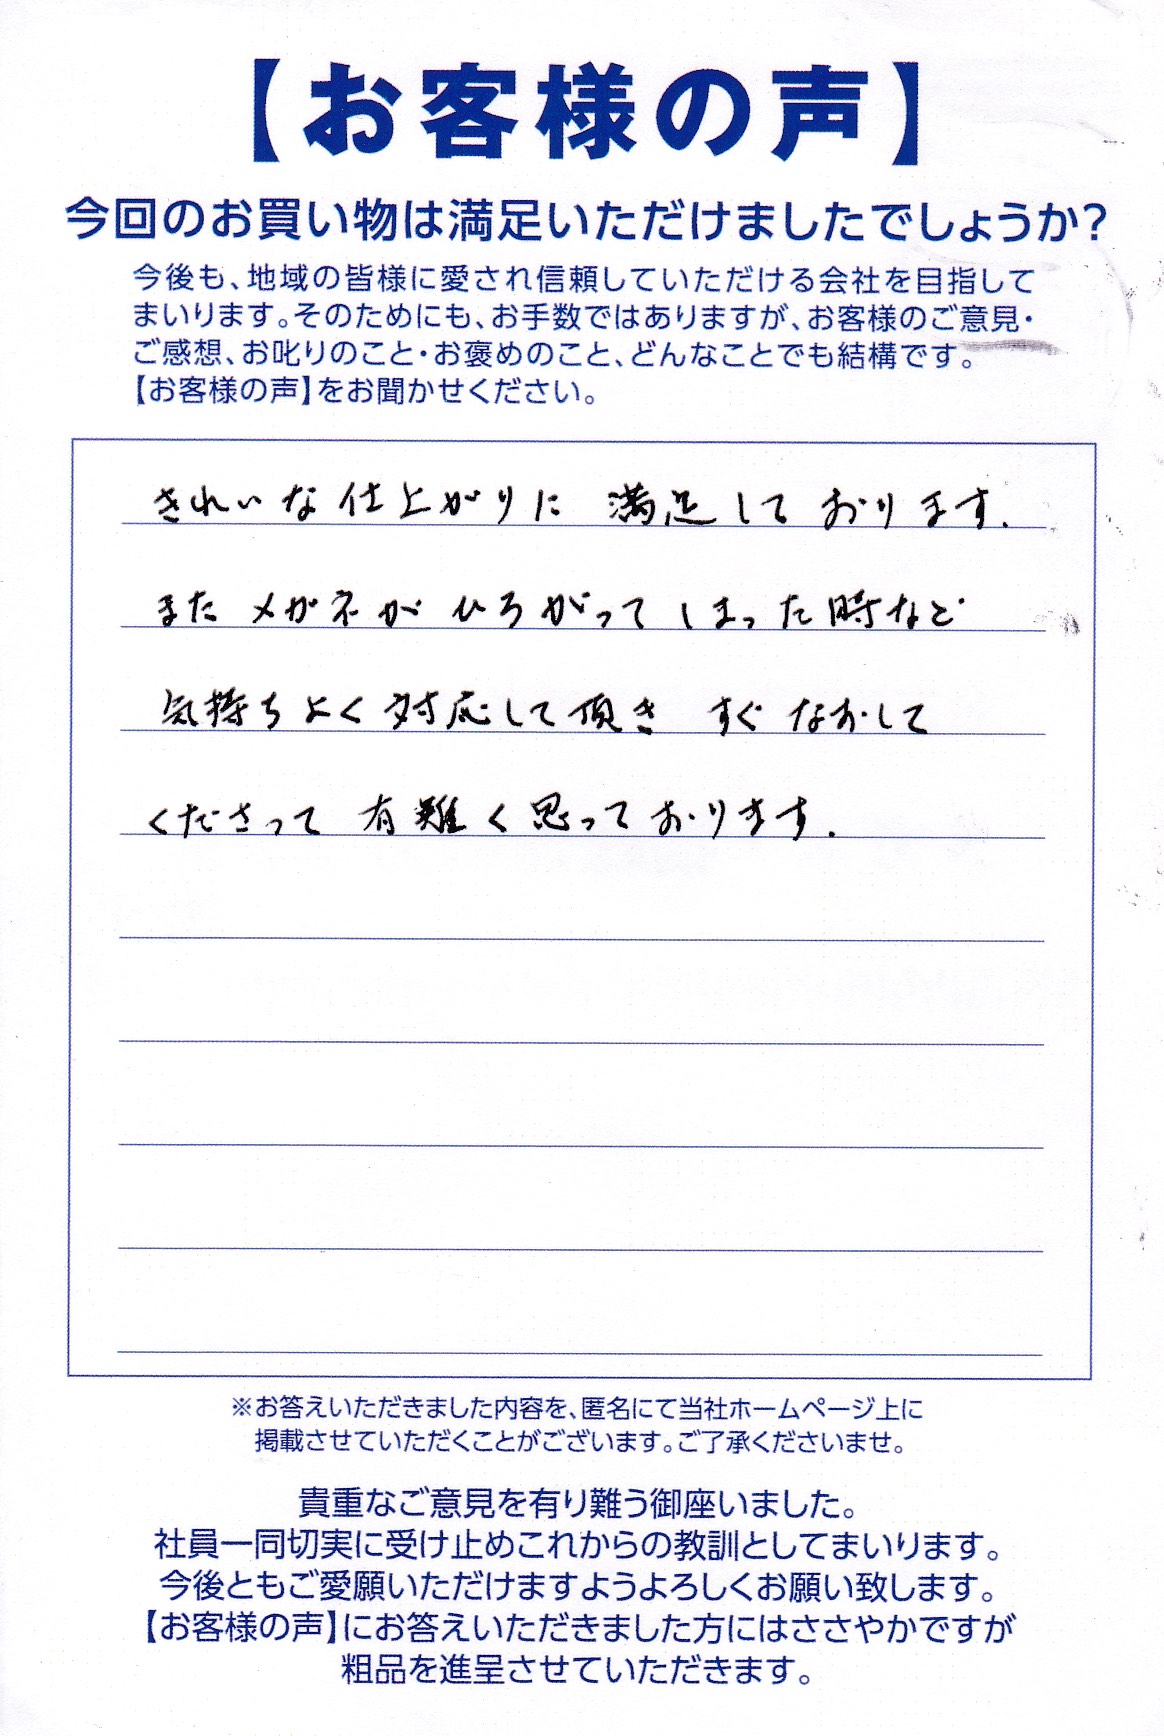 【お客様の声】
今回のお買い物は満足いただけましたでしょうか?
今後も、地域の皆様に愛され信頼していただける会社を目指して
まいります。そのためにも、お手数ではありますが、お客様のご意見・
ご感想、お叱りのこと・お褒めのこと、どんなことでも結構です。
【お客様の声】をお聞かせください。
きれいな仕上がりに 満足しております.
また メガネが ひろがってしまった時など
気持ちよく対応して頂き すぐ なおして
くださって 有難く思っております.
※お答えいただきました内容を、匿名にて当社ホームページ上に
掲載させていただくことがございます。ご了承くださいませ。
貴重なご意見を有り難う御座いました。
社員一同切実に受け止めこれからの教訓としてまいります。
今後ともご愛願いただけますようよろしくお願い致します。
【お客様の声】にお答えいただきました方にはささやかですが
粗品を進呈させていただきます。